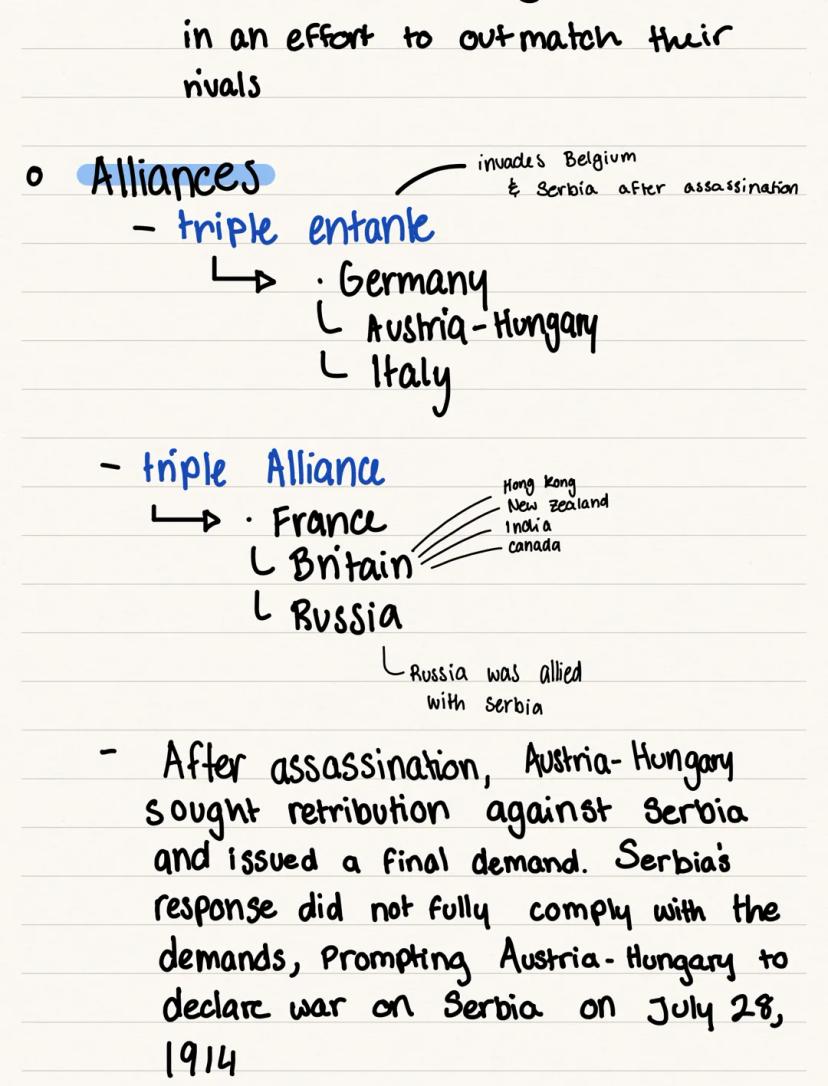 in an effort to outmatch their
rivals
Alliances
invades Belgium
& Serbia after assassination
- triple entante
· Germany
Austria-Hungary
Italy
- triple Alliance
· France
Britain
Russia
Hong Kong
New Zealand
India
Canada
Russia was allied
with Serbia
- After assassination, Austria-Hungary
sought retribution against Serbia
and issued a final demand. Serbia's
response did not fully comply with the
demands, Prompting Austria-Hungary to
declare war on Serbia on July 28,
1914